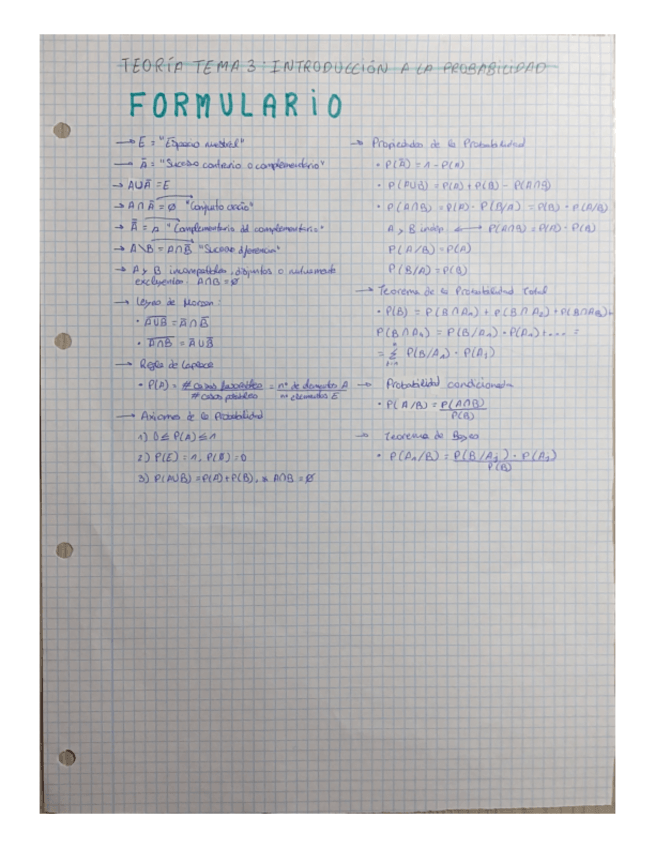 TEORÍA TEMA 3: INTRODUCCIÓN A LA PROBABILIDAD
FORMULARIO
→ E = "Espacio muestral"
→ Ā = "Suceso contrario o complementario"
→ A∪Ā = E
→ A∩Ā = ∅ "Conjunto vacío"
→ "Complementario del complementario"
→ A\B = A∩B̅ "Suceso diferencia"
→ A y B incompatibles, disjuntos o mutuamente
excluyentes: A∩B = ∅
→ Leyes de Morgan:
• A̅∪̅B̅ = A̅∩B̅
• A̅∩̅B̅ = A̅∪B̅
→ Regla de Laplace
• P(A) = # casos favorables / # casos posibles = nº de elementos A / nº elementos E
→ Axiomas de la Probabilidad
1) 0 ≤ P(A) ≤ 1
2) P(E) = 1, P(∅) = 0
3) P(A∪B) = P(A) + P(B), si A∩B = ∅
→ Propiedades de la Probabilidad
• P(A̅) = 1 - P(A)
• P(A∪B) = P(A) + P(B) - P(A∩B)
• P(A∩B) = P(A) · P(B/A) = P(B) · P(A/B)
A y B indep. ⟷ P(A∩B) = P(A) · P(B)
P(A/B) = P(A)
P(B/A) = P(B)
→ Teorema de la Probabilidad Total
• P(B) = P(B∩A₁) + P(B∩A₂) + P(B∩A₃)+
P(B∩A₁) = P(B/A₁) · P(A₁) + .... =
= Σ P(B/A₁) · P(A₁)
→ Probabilidad condicionada
• P(A/B) = P(A∩B) / P(B)
→ Teorema de Bayes
• P(A₁/B) = P(B/A₂) · P(A₂) / P(B)